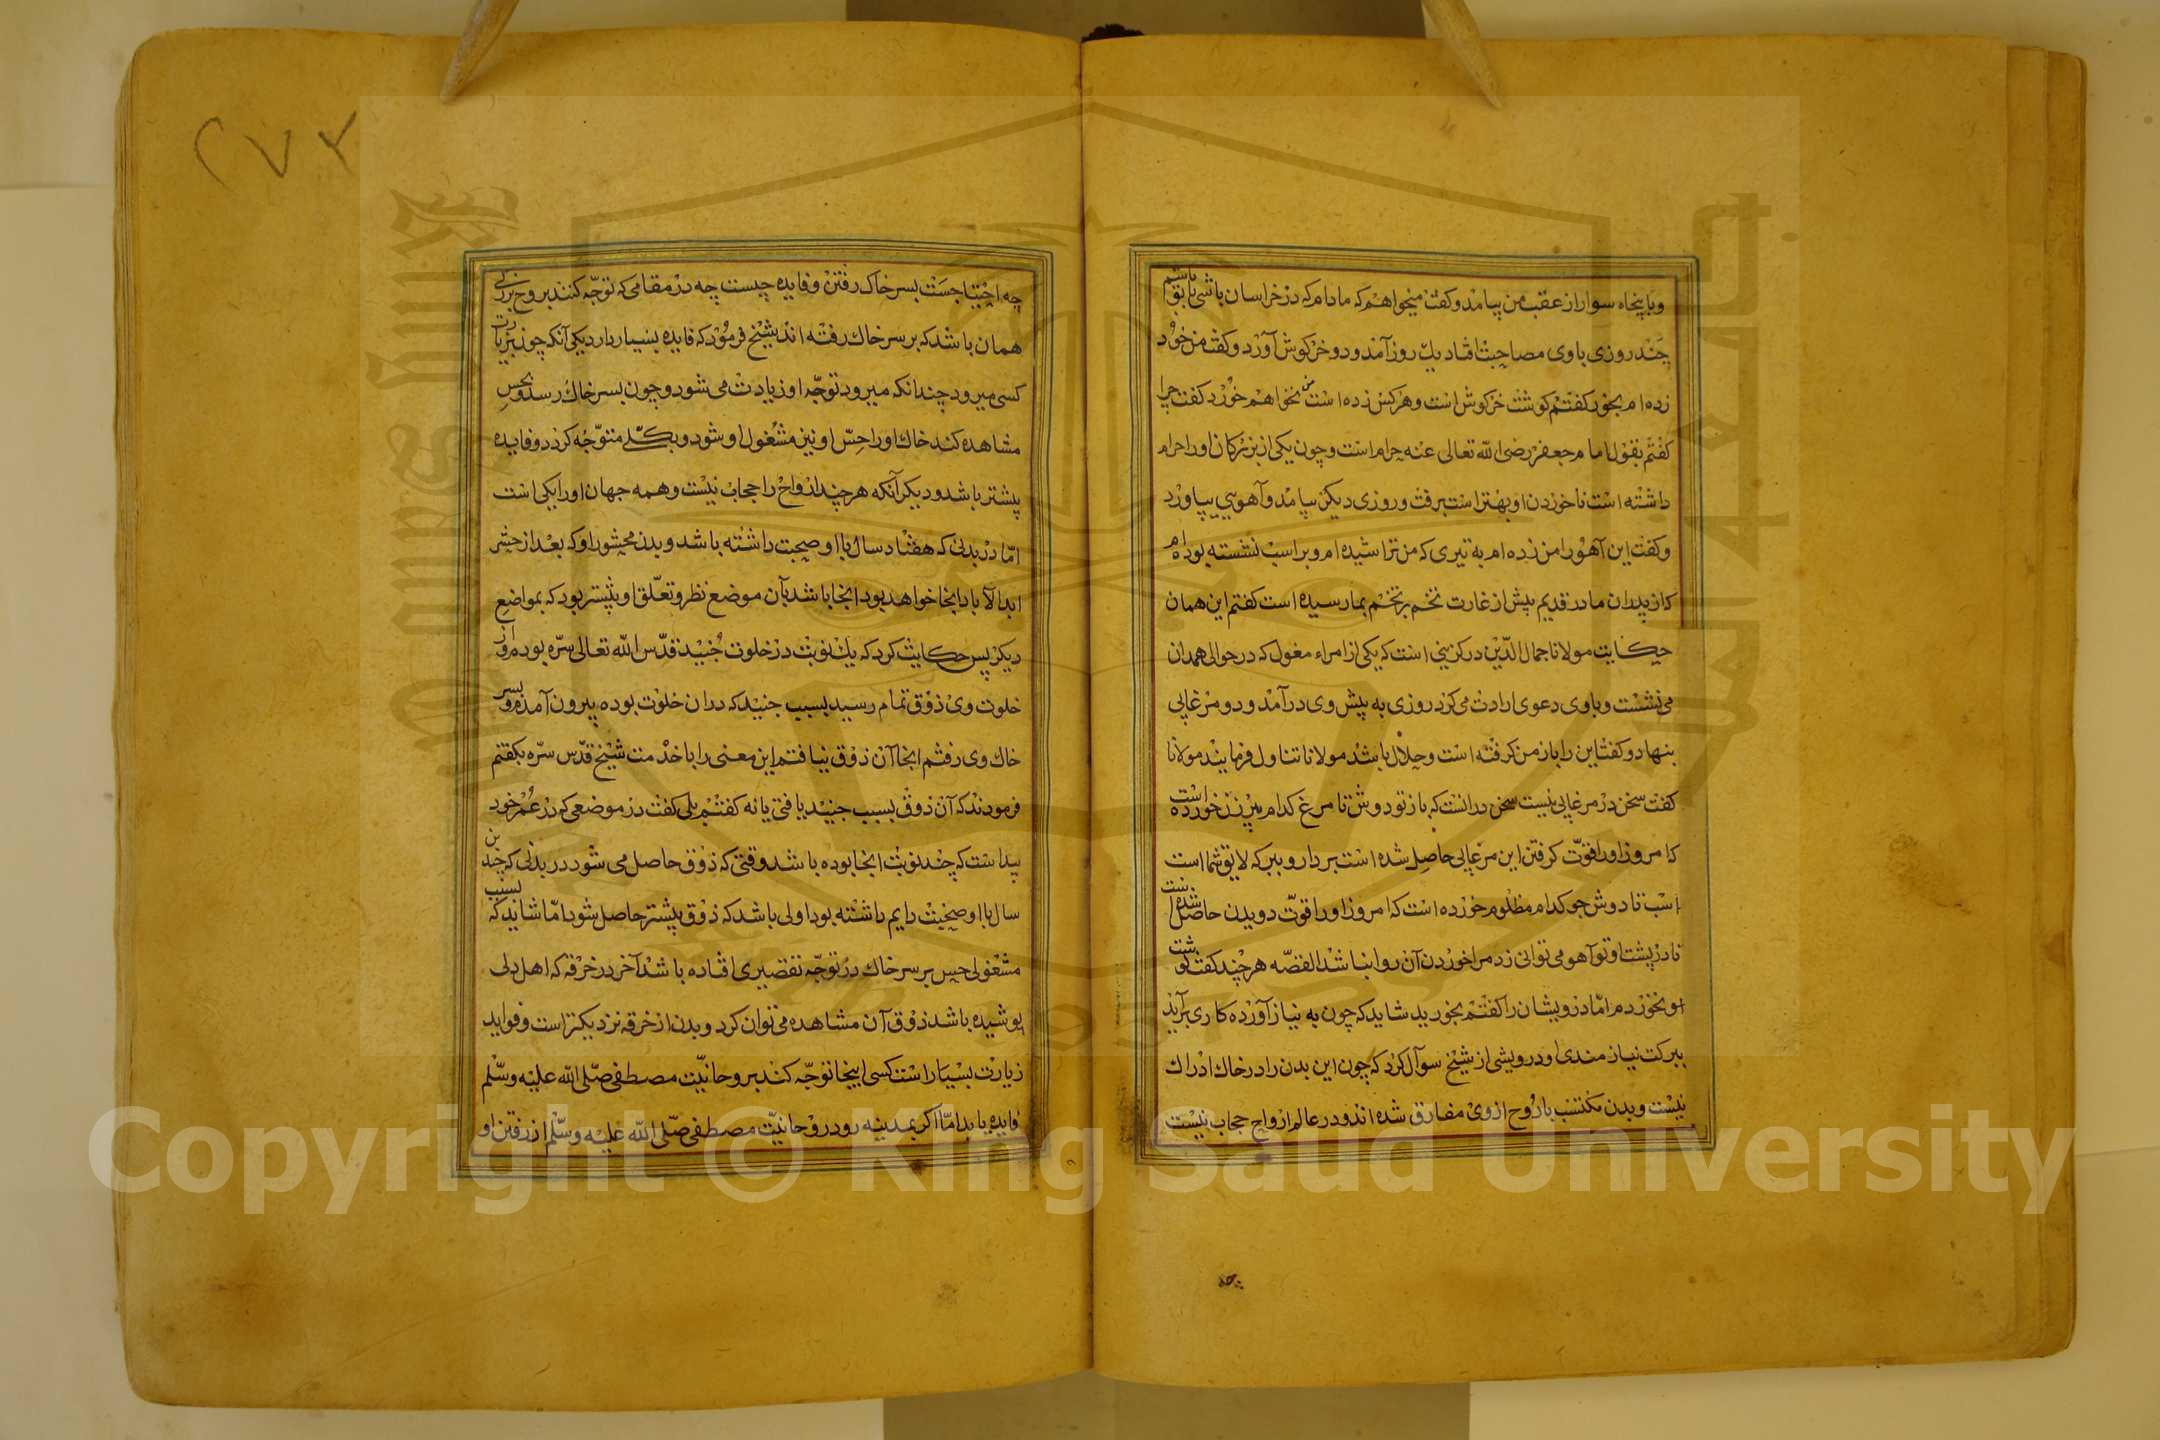 وبا پنجاه سوار از عقب من بیامد و کفت میخواهم که مادام که در خراسان باشی با تو باشم
چند روزی با وی مصاحبت افتاد یک روز آمد و دو خرکوش آورد و کفت من خود
زده ام بخور کفتم کوشت خرکوش است و هرکس زده است من نخواهم خورد کفت چرا
کفتم بقول امام جعفر رضی الله تعالی عنه حرام است و چون یکی از بزرکان او را حرام
داشته است ناخوردن او بهتر است برفت و روزی دیکر بیامد و آهویی بیاورد
و کفت این آهو را من زده ام به تیری که من تراشیده ام و بر اسب نشسته بوده ام
که از پدران ما در قدیم پیش از غارت تخم بر تخم بما رسیده است کفتم این همان
حکایت مولانا جمال الدّین درکزینی است که یکی از امراء مغول که در حوالی همدان
می نشست و با وی دعوی ارادت می کرد روزی به پیش وی در آمد و دو مرغابی
بنهاد و کفت این را باز من کرفته است و حلال باشد مولانا تناول فرمایند مولانا
کفت سخن در مرغابی نیست سخن در انست که باز تو دوش تا مرغ کدام پیر زن خورده است
که امروز او را قوّت کرفتن این مرغابی حاصل شده است بردار و ببر که لایق شما است
اسب تا دوش جو کدام مظلوم خورده است که امروز او را قوّت دویدن حاصل شده است
تا در پشت او تو آهو می توانی زد مرا خوردن آن روا نباشد القصّه هر چند کفت کوشت
او نخوردم امّا درویشان را کفتم بخورید شاید که چون به نیاز آورده کاری برآید
ببرکت نیازمندی او درویشی از شیخ سوآل کرد که چون این بدن را در خاک ادراک
نیست و بدن مکتسب با روح از وی مفارق شده اند و در عالم ارواح حجاب نیست
چه
٢٧٢
چه احتیاجست بسر خاک رفتن و فایده چیست چه در مقامی که توجّه کنند بروح بزرکی
همان باشد که بر سر خاک رفته اند شیخ فرمود که فایده بسیار دارد یکی آنکه چون بزیارت
کسی میرود چندانکه میرود توجّه او زیادت می شود و چون بسر خاک رسد و بحس
مشاهده کند خاک او را حسّ او نیز مشغول او شود و بکلّی متوّجه کردد و فایده
پیشتر باشد و دیکر آنکه هر چند ارواح را حجاب نیست و همه جهان او را یکی است
امّا در بدنی که هفتاد سال با او صحبت داشته باشد و بدن محشور او که بعد از حشر
ابد الآباد انجا خواهد بود انجا باشد بآن موضع نظر و تعلّق او بیشتر بود که بمواضع
دیکر پس حکایت کرد که یک نوبت در خلوت جُنید قدّس الله تعالی سرّه بودم و از
خلوت وی ذوق تمام رسید بسبب جنید که در ان خلوت بوده بیرون آمدم و بسر
خاک وی رفتم انجا آن ذوق نیافتم این معنی را با خدمت شیخ قدّس سرّه بکفتم
فرمودند که آن ذوق بسبب جنید یافتی یا نه کفتم بلی کفت در موضعی که در عمر خود
پیداست که چند نوبت انجا بوده باشد وقتی که ذوق حاصل می شود در بدنی که چندین
سال با او صحبت دایم داشته بود اولی باشد که ذوق بیشتر حاصل شود امّا شاید که بسبب
مشغولی حس بر سر خاک در توجّه تقصیری افتاده باشد آخر در خرقه که اهل دلی
پوشیده باشد ذوق آن مشاهده می توان کرد و بدن از خرقه نزدیکتر است و فواید
زیارت بسیار است کسی اینجا توجّه کند بروحانیّت مصطفی صلّی الله علیه وسلّم
فایده یابد امّا اکر بمدینه رود روحانیّت مصطفی صلّی الله علیه وسلّم از رفتن او
Copyright © King Saud University